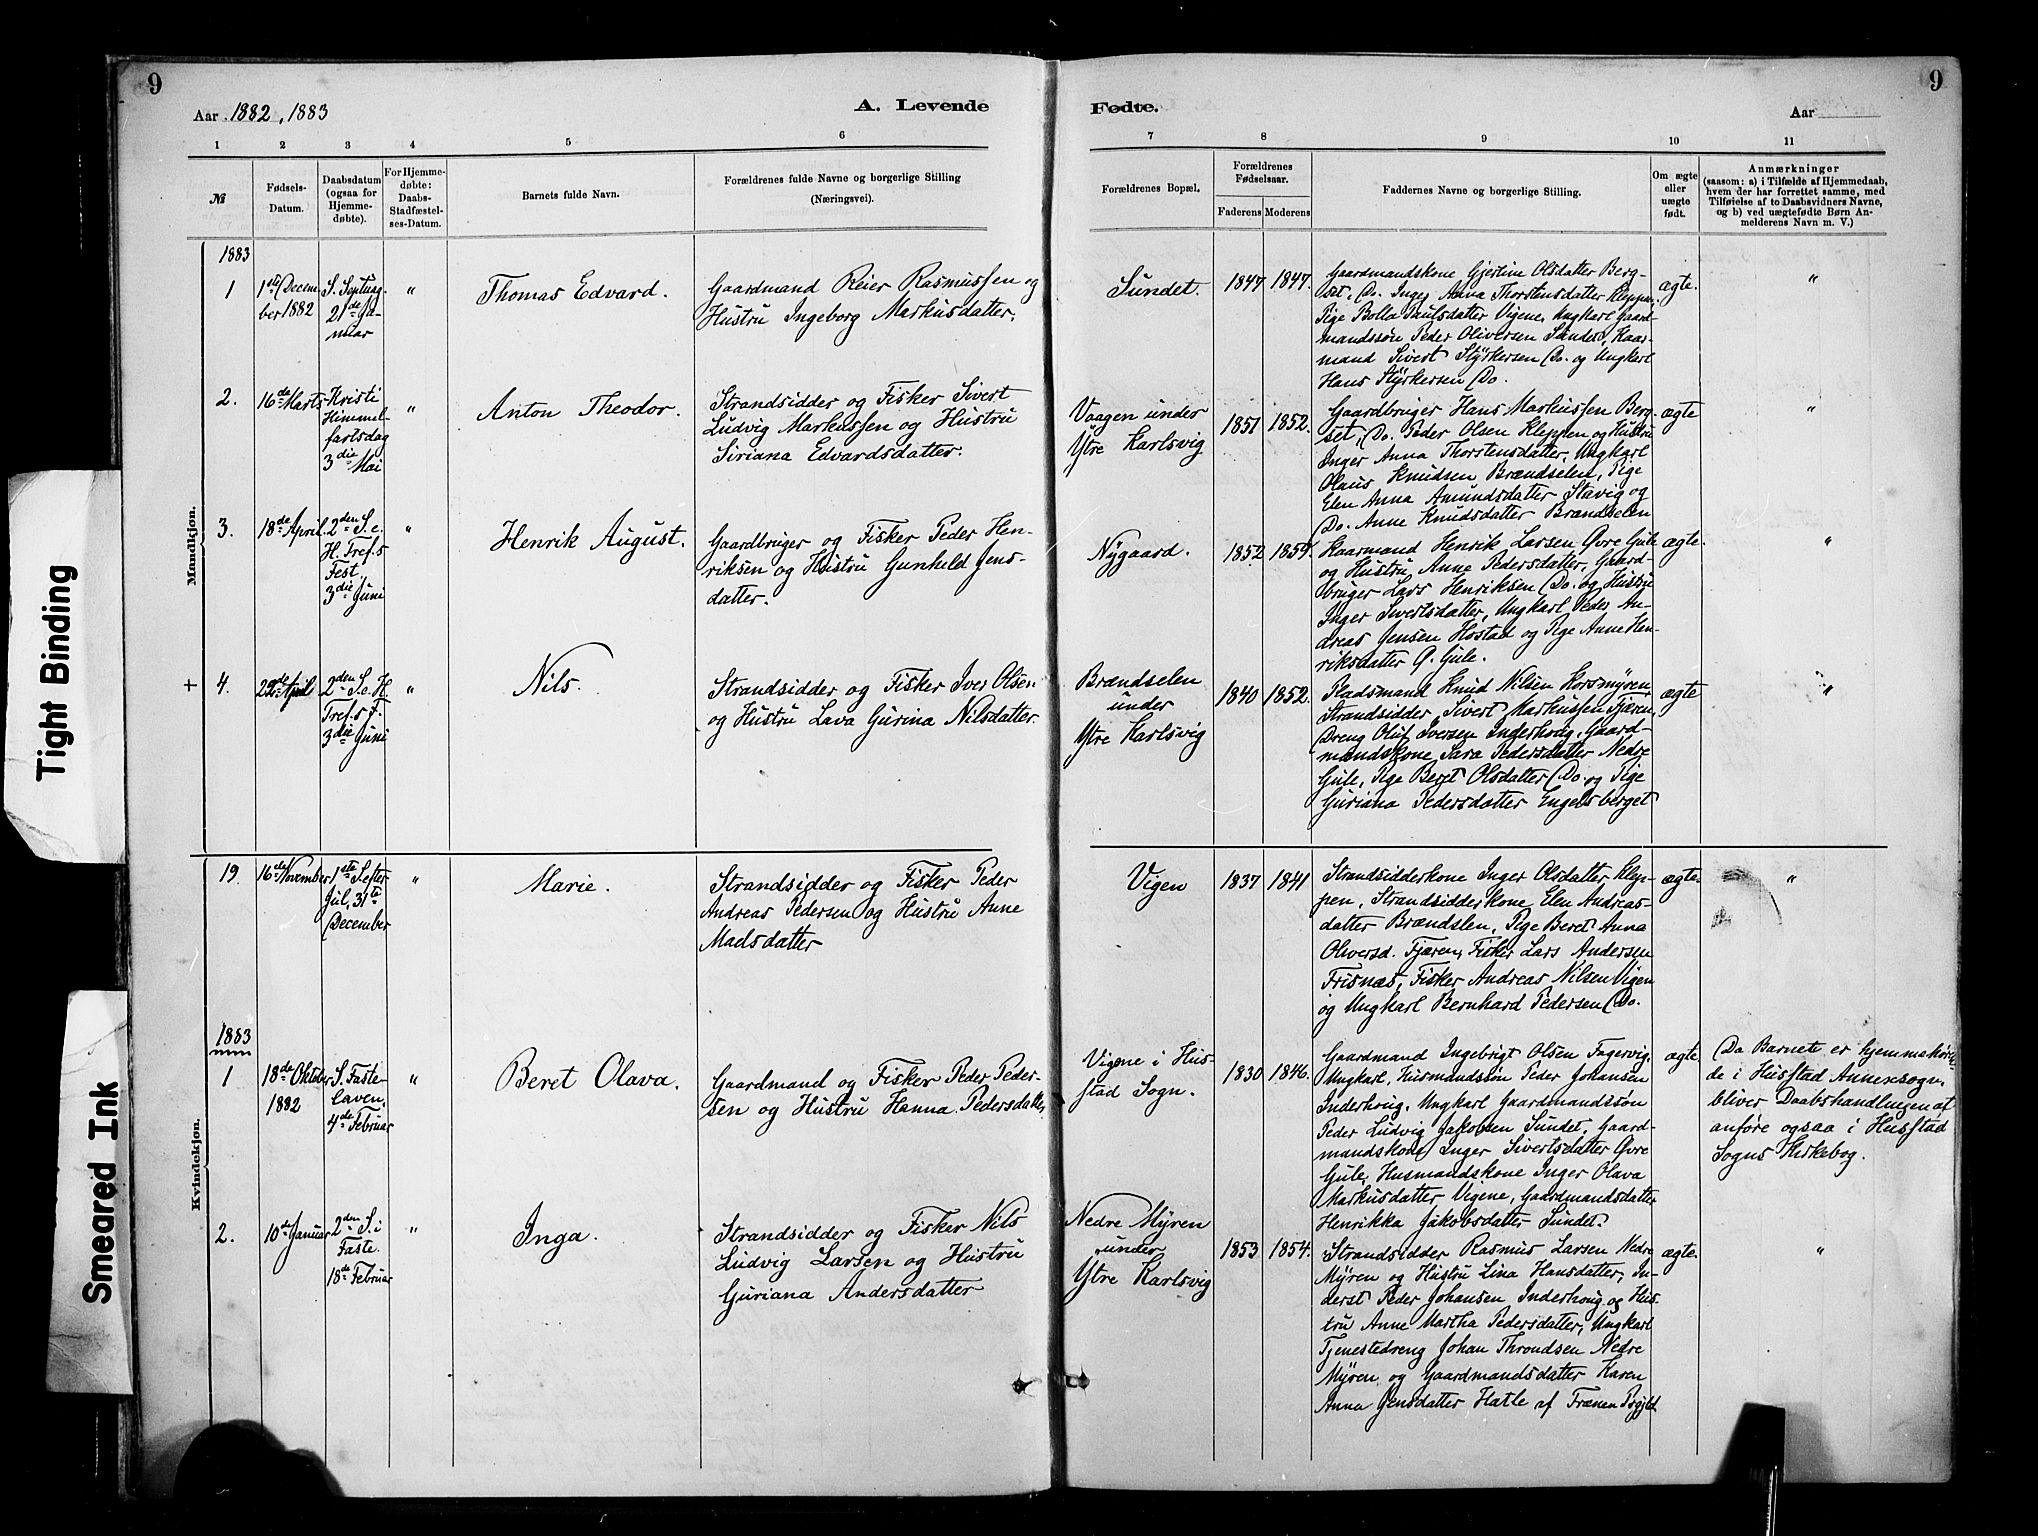 9
9
Aar 1882, 1883
A. Levende
Fødte.
Aar
1 2 3 4 5 6 7 8 9 10 11
№
Fødsels-
Datum.
Daabsdatum
(ogsaa for
Hjemme-
døbte).
For Hjemme-
døbte:
Daabs-
Stadfæstel-
ses-Datum.
Barnets fulde Navn.
Forældrenes fulde Navne og borgerlige Stilling
(Næringsvei).
Forældrenes Bopæl.
Forældrenes
Fødselsaar.
Faderens
Moderens
Faddernes Navne og borgerlige Stilling.
Om ægte
eller
uægte
født.
Anmærkninger
(saasom: a) i Tilfælde af Hjemmedaab,
hvem der har forrettet samme, med
Tilføielse af to Daabsvidners Navne,
og b) ved uægtefødte Børn An-
melderens Navn m. V.)
Mandkjøn.
1883
1
1ste Decem-
ber 1882
S. Septuag.
21de Ja-
nuar
"
Thomas Edvard.
Gaardmand Reier Rasmussen og
Hustru Ingeborg Markusdatter.
Sundet.
1847
1847.
Gaardmandskone Gjertine Olsdatter Berg-
set, Do. Inger Anna Thorstensdatter Kleppen,
Pige Bolla Paulsdatter Vigene, Ungkarl Gaard-
mandssøn Peder Oliversen Sundet, Kaar-
mand Sivert Styrkersen Do. og Ungkarl
Hans Styrkersen Do.
ægte.
"
2.
16de Marts
Kristi
Himmel-
fartsdag
3die Mai
"
Anton Theodor.
Strandsidder og Fisker Sivert
Ludvig Markussen og Hustru
Siriana Edvardsdatter.
Vaagen under
Ytre Karlsvig
1851
1852.
Gaardbruger Hans Markussen Berg-
set, Do. Peder Olsen Kleppen og Hustru
Inger Anna Thorstensdatter, Ungkarl
Olaus Knudsen Brændselen, Pige
Elen Anna Amundsdatter Stavig og
Do. Anne Knudsdatter Brændselen
ægte
"
3.
18de April.
2den S. e.
H. Tref.s
Fest.
3die Juni
"
Henrik August.
Gaardbruger og Fisker Peder Hen-
riksen og Hustru Gunhild Jens-
datter.
Nygaard.
1852
1859.
Kaarmand Henrik Larsen Øvre Gule
og Hustru Anne Pedersdatter, Gaard-
bruger Lars Henriksen Do. og Hustru
Inger Sivertsdatter, Ungkarl Peder An-
dreas Jensen Hostad og Pige Anne Hen-
riksdatter Ø. Gule.
ægte.
"
+
4.
22de April
2den S. e. H.
Tref.s F.
3die Juni
"
Nils.
Strandsidder og Fisker Iver Olsen
og Hustru Lava Gurina Nilsdatter.
Brændselen
under
Ytre Karlsvig
1840
1852.
Pladsmand Knud Nilsen Korsmyren,
Strandsidder Sivert Markussen Fjæren,
Dreng Oluf Iversen Inderhoug, Gaard-
mandskone Sara Pedersdatter Nedre
Gule, Pige Beret Olsdatter Do. og Pige
Guriana Pedersdatter Engelsberget
ægte
"
19.
16de November
1ste S. efter
Jul, 31te
December
"
Marie.
Strandsidder og Fisker Peder
Andreas Pedersen og Hustru Anne
Madsdatter
Vigen
1837
1841
Strandsidderkone Inger Olsdatter Klep-
pen, Strandsidderkone Elen Andreas-
datter Brændslen, Pige Beret Anna
Oliversd. Fjæren, Fisker Lars Andersen
Frisnæs, Fisker Andreas Nilsen Vigen
og Ungkarl Bernhard Pedersen Do.
ægte
"
Kvindekjøn.
1883
1
18de Oktober
1882
S. Faste-
laven,
4de Februar
"
Beret Olava.
Gaardmand og Fisker Peder Peder-
sen og Hustru Hanna Pedersdatter,
Vigene i Hus-
stad Sogn.
1830
1846.
Gaardmand Ingebrigt Olsen Fagervig,
Ungkarl, Husmandssøn Peder Johansen
Inderhoug, Ungkarl Gaardmandssøn
Peder Ludvig Jakobsen Sundet, Gaard-
mandskone Inger Sivertsdatter Øvre
Gule, Husmandskone Inger Olava
Markusdatter Vigene, Gaardmandsdatter
Henrikka Jakobsdatter Sundet.
ægte
Da Barnet er hjemmehøren-
de i Husstad Annexsogn,
bliver Daabshandlingen at
anføre ogsaa i Husstad
Sogns Kirkebog.
2.
10de Januar
2den S. i
Faste.
18de Februar
"
Inga.
Strandsidder og Fisker Nils
Ludvig Larsen og Hustru
Guriana Andersdatter
Nedre Myren
under
Ytre Karlsvig
1853
1854.
Strandsidder Rasmus Larsen Nedre
Myren og Hustru Lina Hansdatter, In-
derst Peder Johansen Inderhoug og Hus-
tru Anne Martha Pedersdatter, Ungkarl
Tjenestedreng Johan Throndsen Nedre
Myren og Gaardmandsdatter Karen
Anna Jensdatter Hatle af Frænen Prgjld
ægte.
"
Tight Binding
Smeared Ink